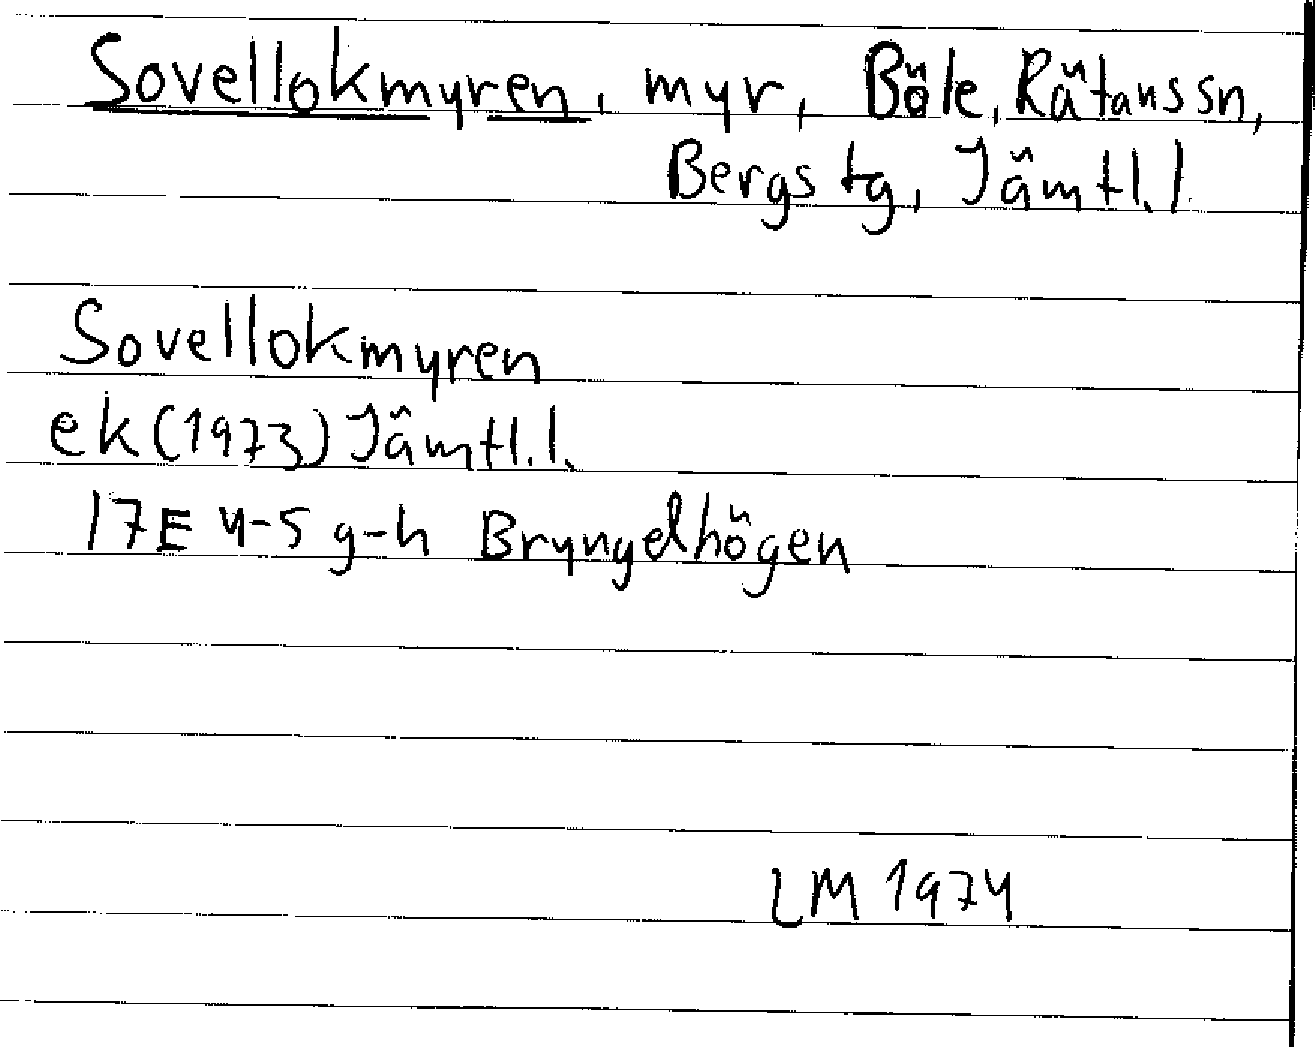 Sovellokmyren, myr, Böle, Rätanssn,
Bergs tg, Jämtl.l.
Sovellokmyren
ek(1973) Jämtl.l.
17E 4-5 g-h Bryngelhögen
LM 1974